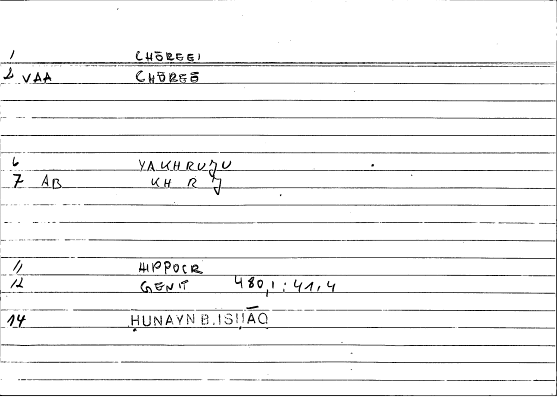 1 CHŌREEI
2 VAA CHŌREŌ
6 YAKHRUJU
7 AB KH R J
11 HIPPOCR
12 GENIT 480,1 ; 41,4
14 ḤUNAYN B. ISḤĀQ